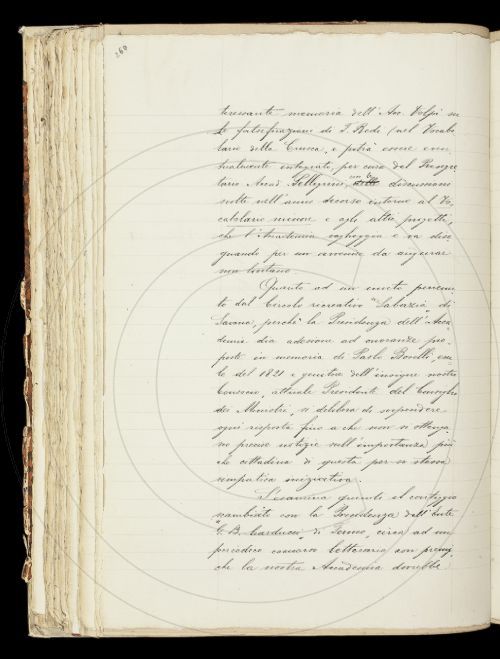 260
teressante memoria dell'Acc. Volpi su
le falsificazioni di F. Redi (nel Vocabo
lario della Crusca, e potrà essere even
tualmente integrato, per cura del Prosegre
tario Accad. Pellegrini, con le discussioni
svolte nell'anno decorso intorno al Vo_
cabolario minore e agli altri progetti,
che l'Accademia vagheggia e va dise
gnando per un avvenire da augurarsi
non lontano.
Quanto ad un invito pervenu
to dal Circolo recreativo "Sabazia" di
Savona, perchè la Presidenza dell'Acca
demia dia adesione ad onoranze pro_
poste in memoria di Paolo Boselli, esu_
le del 1821 e genitore dell'insigne nostro
Consocio, attuale Presidente del Consiglio
dei Ministri, si delibera di sospendere
ogni risposta fino a che non si otten_ga
no precise notizie sull'importanza più
che cittadina di questa per se stessa
simpatica iniziativa.
S'esamina quindi il carteggio
scambiato con la Presidenza dell'Ente
"G. B. Carducci" di Fermo, circa ad un
periodico concorso letterario con premi,
che la nostra Accademia dovrebbe